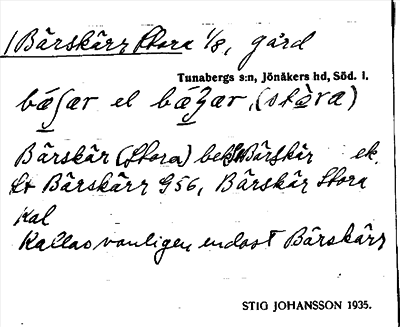 1 Bärskärr Stora 1/8, gård
Tunabergs s:n, Jönåkers hd, Söd. l.
bæʃær el bæȝær, (stòra)
Bärskär (Stora) bek St Bärskär ek
St Bärskärr G56, Bärskär Stora
Kal
Kallas vanligen endast Bärskärr
STIG JOHANSSON 1935.